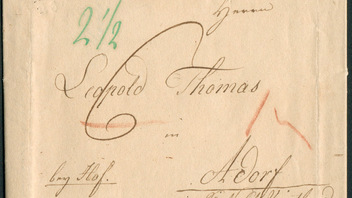 2 1/2
Herrn
6
Leopold Thomas
in
bey Hof. Adorf